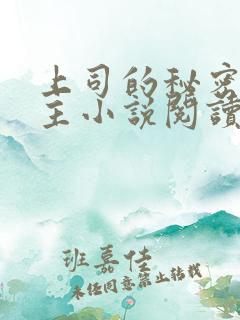 上司的秘密
主小说閱讀
班嘉佳
未经同意禁止转载